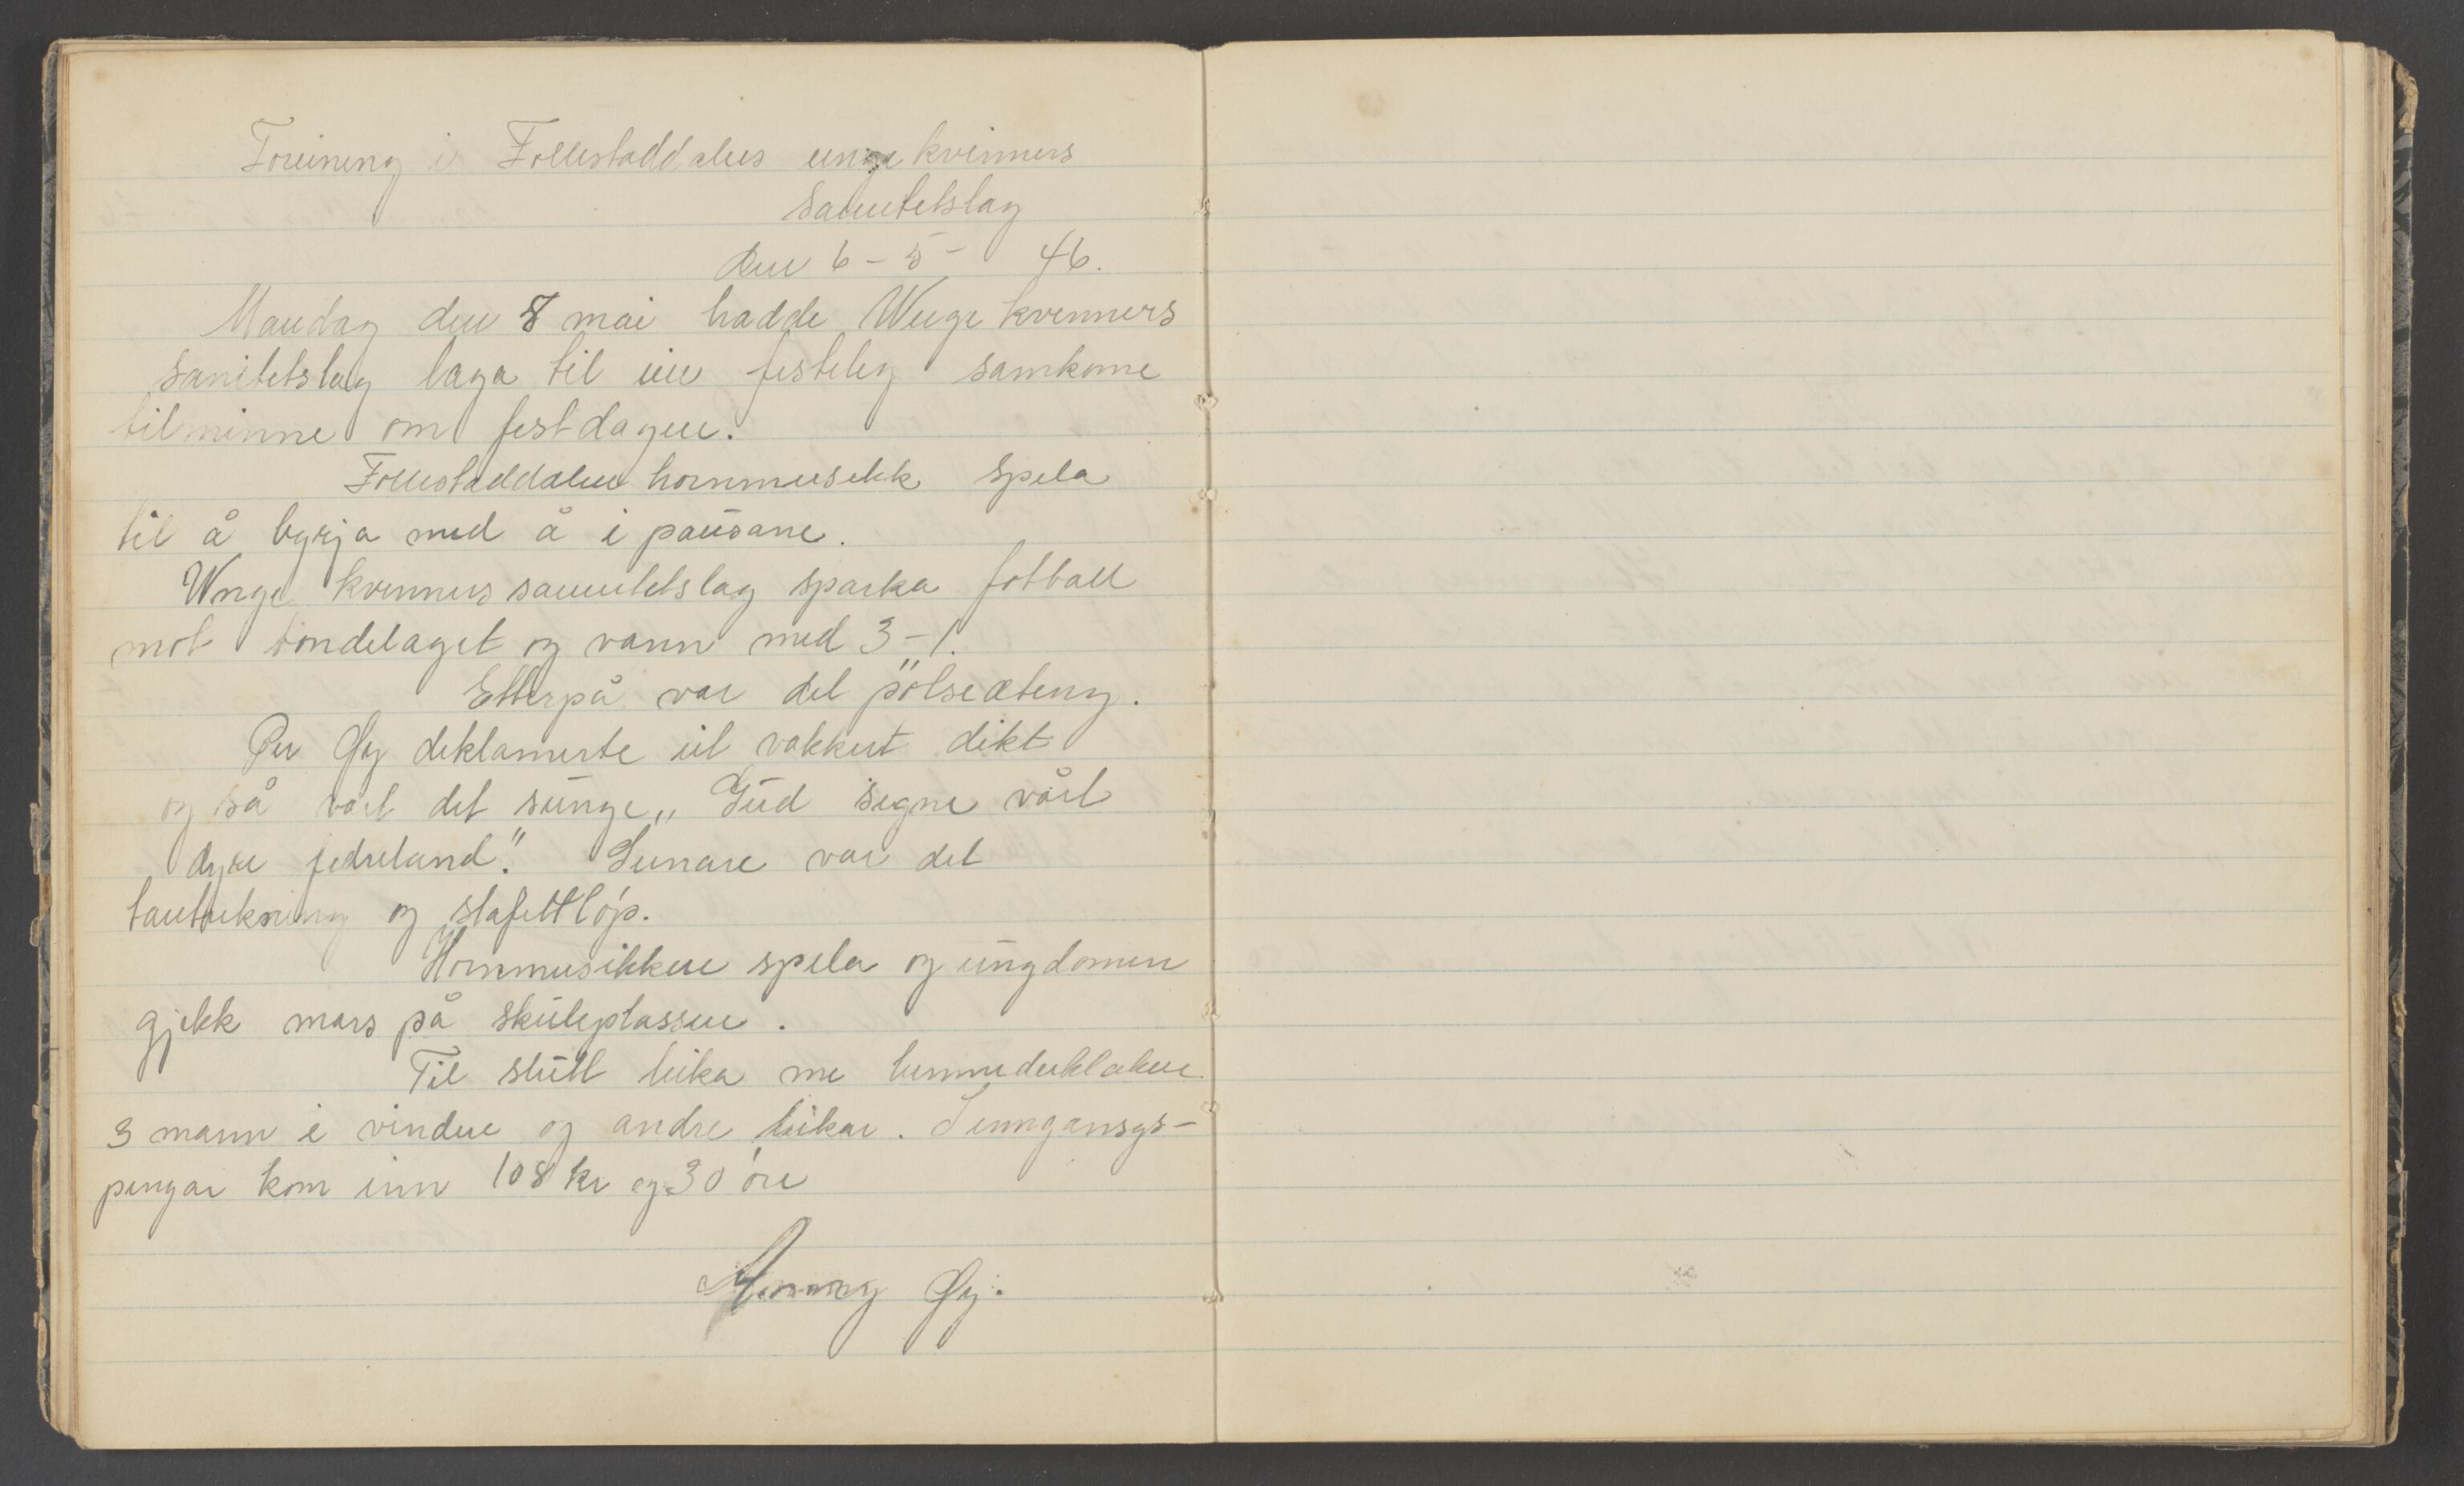 Foreining i Follestaddalens unge kvinners
sanitetslag
den 6 - 5 - 46.
Mandag den 8 mai hadde Unge kvinners
sanitetslag laga til ein festeleg samkome
til minne om festdagen.
Follestaddalen hornmusikk spela
til å byrja med å i pausane.
Unge kvinners sanitetslag sparka fotball
mot bondelaget og vann med 3 - 1.
Etterpå var det pölseæteng.
Per Øy deklamerte eit vakkert dikt
og så vart det sunge „Gud signe vårt
dyre fedreland". Seinare var det
tautrekning og stafettlóp.
Hornmusikken spela og ungdomen
gjekk mars på skuleplassen.
Til slutt leika me
3 mann i vinden og andre leikar. Inngangsgs-
pengar kom inn 108 kr og 30 öre
Øy.